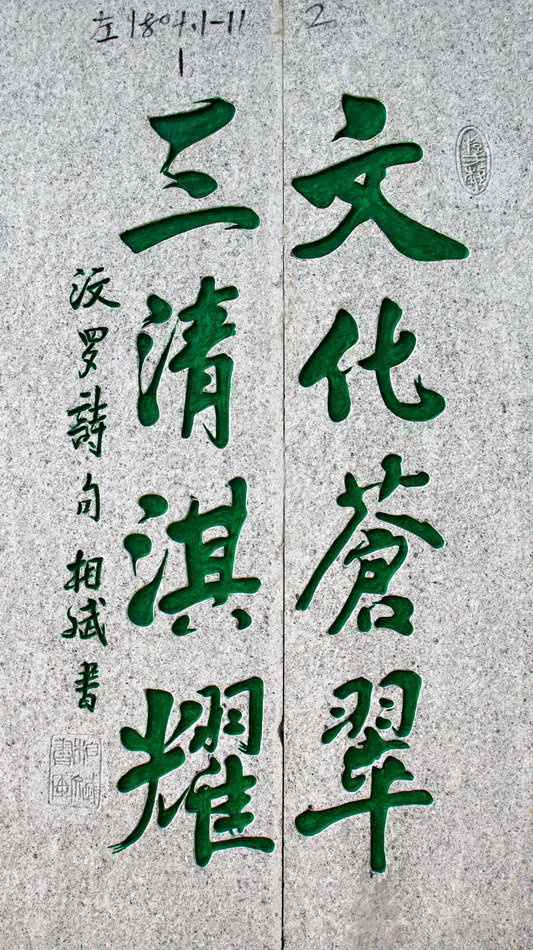 左1804.1-11
1
2
文化蒼翠
三清淇耀
汶罗詩句 相斌書